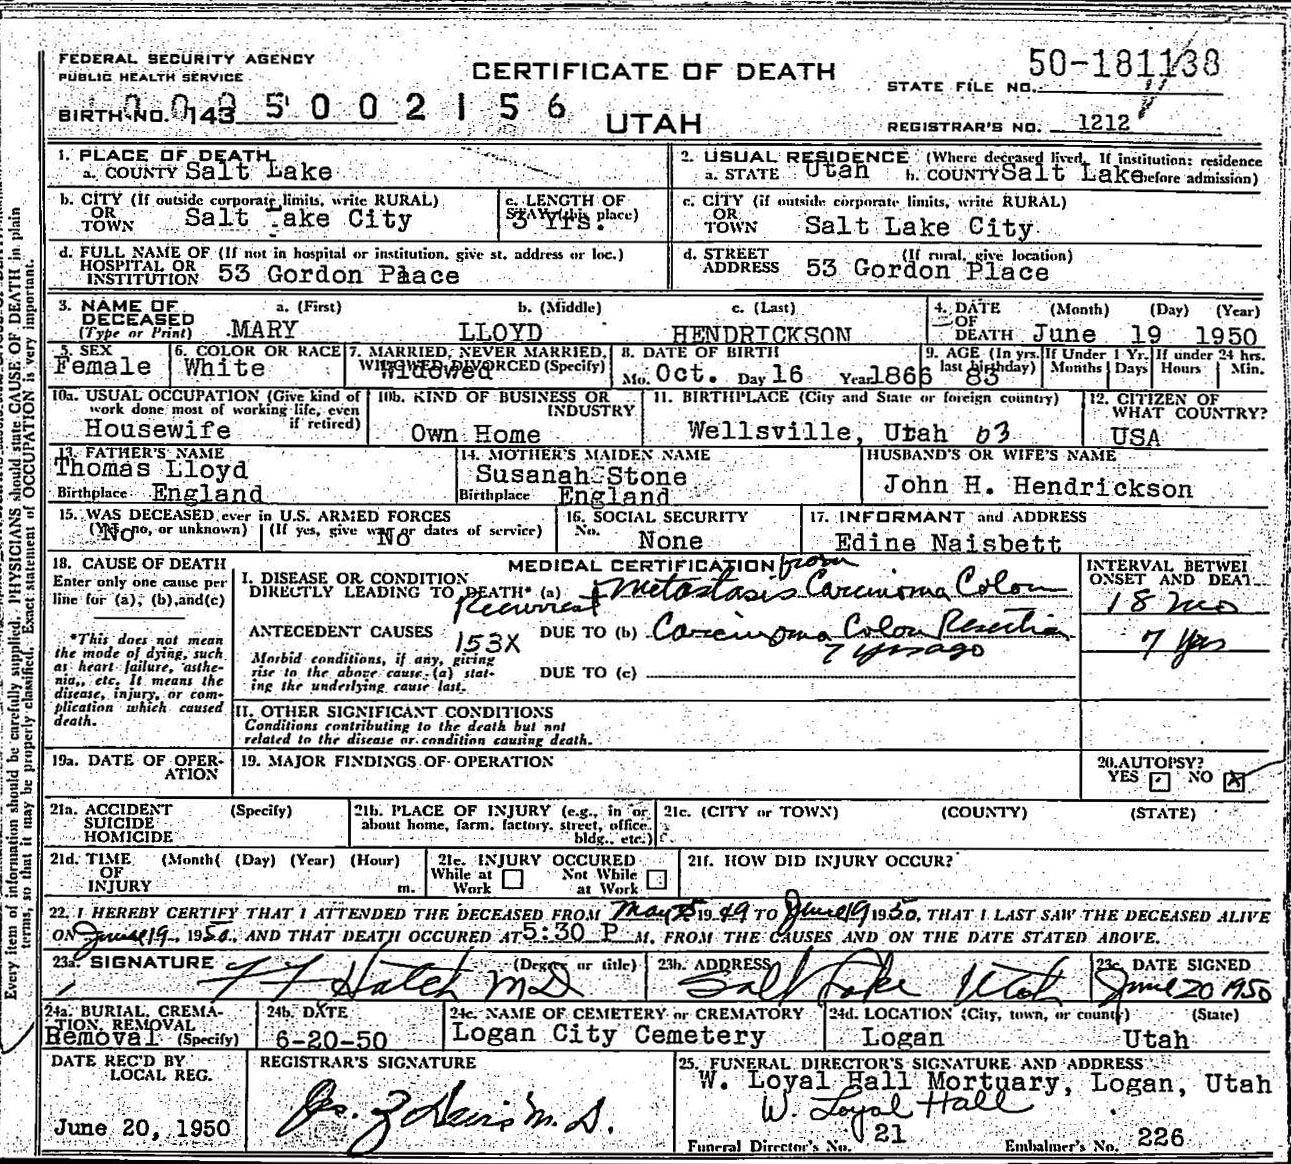 FEDERAL SECURITY AGENCY
PUBLIC HEALTH SERVICE
CERTIFICATE OF DEATH
STATE FILE NO. 50-181138
BIRTH NO. 143 5002156
UTAH
REGISTRAR'S NO. 1212
1. PLACE OF DEATH
a. COUNTY Salt Lake
2. USUAL RESIDENCE (Where deceased lived. If institution: residence before admission)
a. STATE Utah b. COUNTY Salt Lake
b. CITY (If outside corporate limits, write RURAL)
OR TOWN Salt Lake City
c. LENGTH OF STAY (this place) 3 Yrs.
c. CITY (if outside corporate limits, write RURAL)
OR TOWN Salt Lake City
d. FULL NAME OF (If not in hospital or institution, give st. address or loc.)
HOSPITAL OR INSTITUTION 53 Gordon Plaace
d. STREET ADDRESS (If rural, give location)
53 Gordon Place
3. NAME OF DECEASED (Type or Print)
a. (First) MARY b. (Middle) LLOYD c. (Last) HENDRICKSON
4. DATE OF DEATH (Month) (Day) (Year)
June 19 1950
5. SEX Female
6. COLOR OR RACE White
7. MARRIED, NEVER MARRIED, WIDOWED, DIVORCED (Specify) Widowed
8. DATE OF BIRTH
Mo. Oct. Day 16 Year 1866
9. AGE (In yrs. last birthday) 83
If Under 1 Yr. Months Days
If under 24 hrs. Hours Min.
10a. USUAL OCCUPATION (Give kind of work done most of working life, even if retired)
Housewife
10b. KIND OF BUSINESS OR INDUSTRY
Own Home
11. BIRTHPLACE (City and State or foreign country)
Wellsville, Utah 63
12. CITIZEN OF WHAT COUNTRY?
USA
13. FATHER'S NAME
Thomas Lloyd
Birthplace England
14. MOTHER'S MAIDEN NAME
Susanah Stone
Birthplace England
HUSBAND'S OR WIFE'S NAME
John H. Hendrickson
15. WAS DECEASED ever in U.S. ARMED FORCES
(Yes, no, or unknown) No
(If yes, give war or dates of service) No
16. SOCIAL SECURITY No.
None
17. INFORMANT and ADDRESS
Edine Naisbett
18. CAUSE OF DEATH
Enter only one cause per line for (a), (b), and (c)
*This does not mean the mode of dying, such as heart failure, asthenia, etc. It means the disease, injury, or complication which caused death.
MEDICAL CERTIFICATION
I. DISEASE OR CONDITION DIRECTLY LEADING TO DEATH* (a) Recurrent + Metastasis from Carcinoma Colon
INTERVAL BETWEEN ONSET AND DEATH
18 mo
ANTECEDENT CAUSES 153X
DUE TO (b) Carcinoma Colon Resection
7 yrs ago
7 yrs
Morbid conditions, if any, giving rise to the above cause (a) stating the underlying cause last.
DUE TO (c)
II. OTHER SIGNIFICANT CONDITIONS
Conditions contributing to the death but not related to the disease or condition causing death.
19a. DATE OF OPERATION
19. MAJOR FINDINGS OF OPERATION
20. AUTOPSY?
YES NO X
21a. ACCIDENT SUICIDE HOMICIDE (Specify)
21b. PLACE OF INJURY (e.g., in or about home, farm, factory, street, office bldg., etc.)
21c. (CITY or TOWN) (COUNTY) (STATE)
21d. TIME OF INJURY (Month) (Day) (Year) (Hour) m.
21e. INJURY OCCURED
While at Work Not While at Work
21f. HOW DID INJURY OCCUR?
22. I HEREBY CERTIFY THAT I ATTENDED THE DECEASED FROM May 25 1949 TO June 19 1950, THAT I LAST SAW THE DECEASED ALIVE
ON June 19, 1950, AND THAT DEATH OCCURED AT 5:30 P M. FROM THE CAUSES AND ON THE DATE STATED ABOVE.
23a. SIGNATURE (Degree or title)
F F Hatch MD
23b. ADDRESS
Salt Lake Utah
23c. DATE SIGNED
June 20 1950
24a. BURIAL, CREMATION, REMOVAL (Specify)
Removal
24b. DATE
6-20-50
24c. NAME OF CEMETERY or CREMATORY
Logan City Cemetery
24d. LOCATION (City, town, or county) (State)
Logan Utah
DATE REC'D BY LOCAL REG.
June 20, 1950
REGISTRAR'S SIGNATURE
M.D.
25. FUNERAL DIRECTOR'S SIGNATURE AND ADDRESS
W. Loyal Hall Mortuary, Logan, Utah
W. Loyal Hall
Funeral Director's No. 21 Embalmer's No. 226
Every item of information should be carefully supplied. PHYSICIANS should state CAUSE OF DEATH in plain
terms, so that it may be properly classified. Exact statement of OCCUPATION is very important.